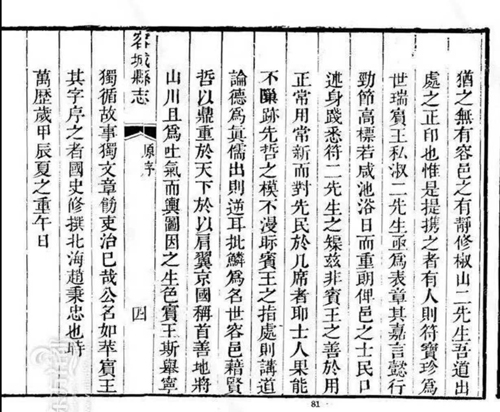 猶之無有容邑之有靜修椒山二先生吾道出
處之正印也惟是提攜之者有人則符寶珍爲
世瑞賓王私淑二先生亟爲表章其嘉言懿行
勁節高標若咸池浴日而重朗俾邑之士民口
述身踐悉符二先生之榘茲非賓王之善於用
正常用常新而對先民於几席者耶士人果能
不隳跡先哲之模不漫眎賓王之指處則講道
論德爲眞儒出則逆耳批鱗爲名世容邑藉賢
哲以鼎重於天下於以肩翼京國稱首善地將
山川且爲吐氣而輿圖因之生色賓王斯舉寧
獨循故事獨文章勒吏治已哉公名如苹賓王
其字序之者國史修撰北海趙秉忠也時
萬歷歲甲辰夏之重午日
容城縣志
原序
四
81